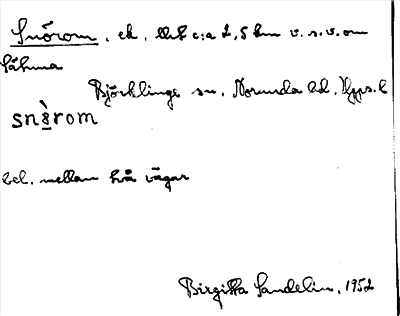 Snörom, ek, litet c:a 2,5 km v.s.v. om
Såhma
Björklinge sn, Norunda hd, Upps. l
snə̀rom
bel. mellan två vägar
Birgitta Sandelin, 1952